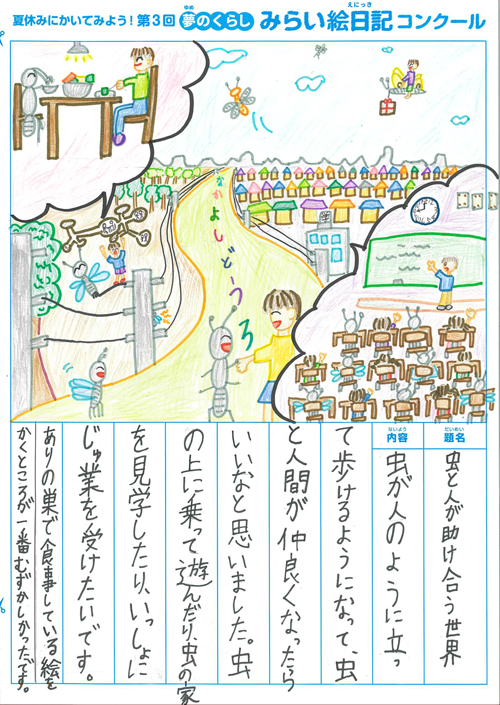 夏休みにかいてみよう!第3回 夢のくらし みらい絵日記コンクール
ゆめ
えにっき
なかよしどーうろ
学
題名
だいめい
虫と人が助け合う世界
内容
ないよう
虫が人のように立っ
て歩けるようになって、虫
と人間が仲良くなったら
いいなと思いました。虫
の上に乗って遊んだり、虫の家
を見学したり、いっしょに
じゅ業を受けたいです。
ありの巣で食事している絵を
かくところが一番むずかしかったです。